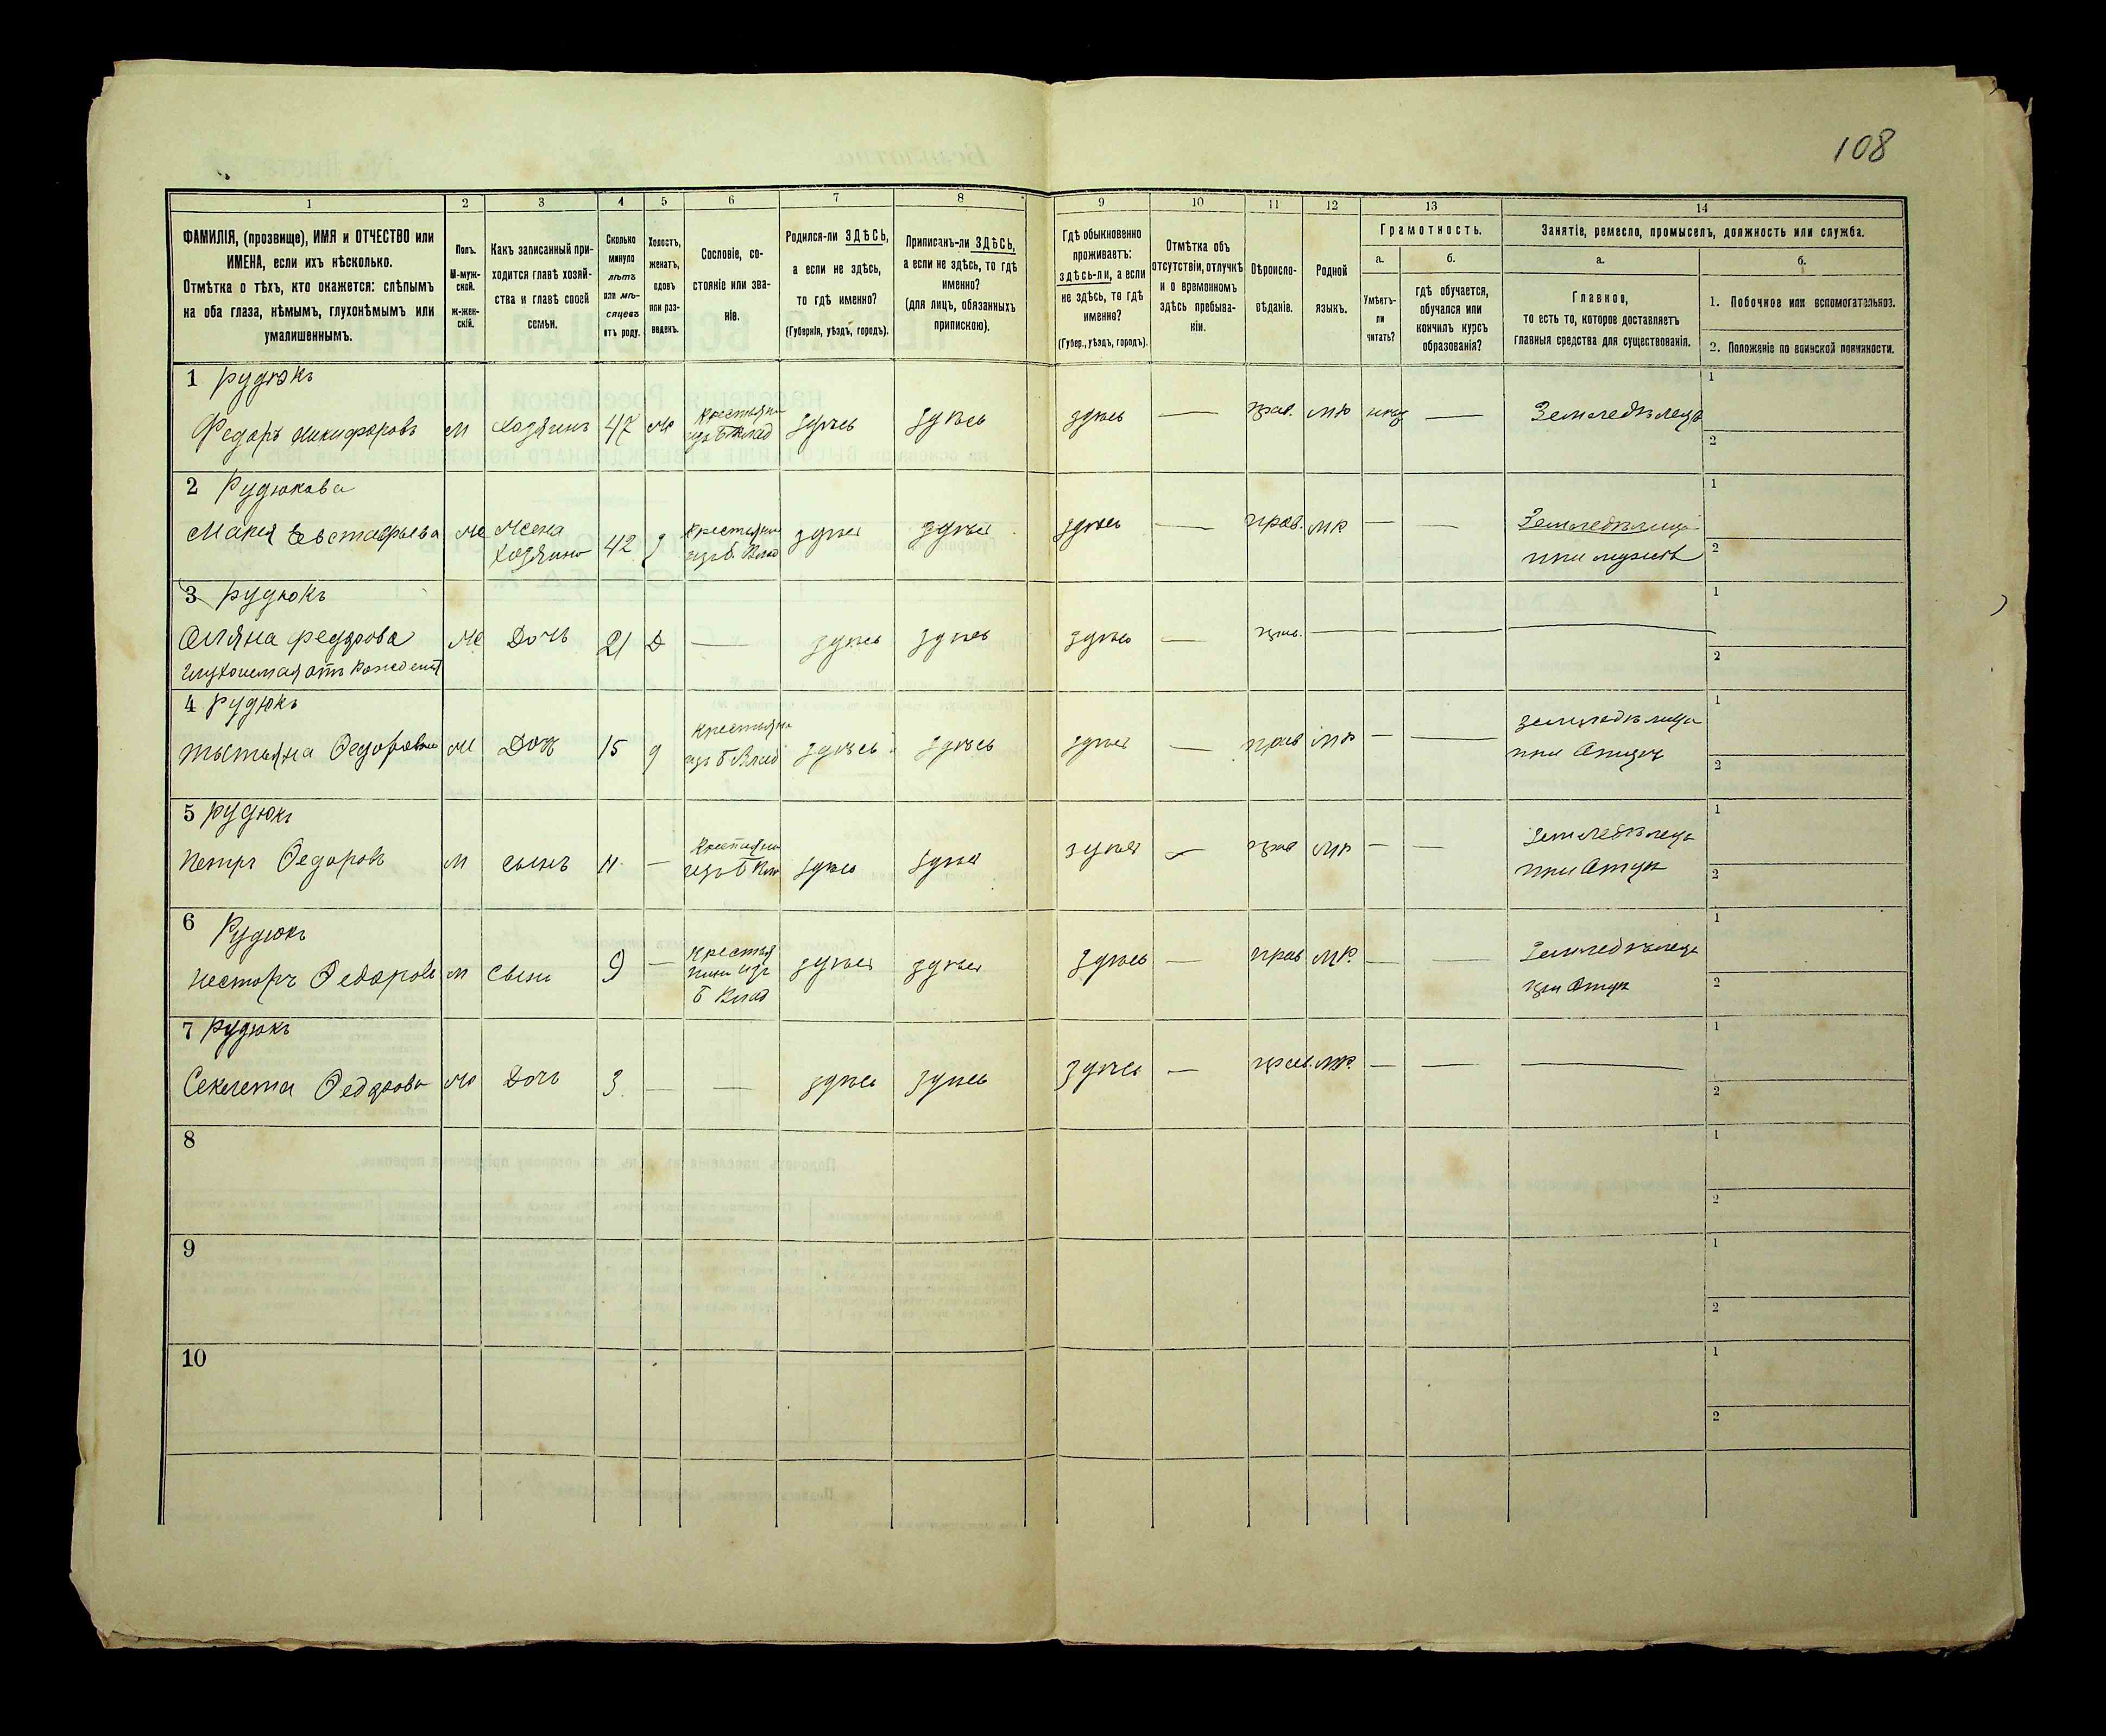 108
1
2
3
4
5
6
7
8
9
10
11
12
13
14
ФАМИЛІЯ, (прозвище), ИМЯ и ОТЧЕСТВО или
ИМЕНА, если ихъ нѣсколько.
Отмѣтка о тѣхъ, кто окажется: слѣпымъ
на оба глаза, нѣмымъ, глухонѣмымъ или
умалишеннымъ.
Полъ.
М-муж-
ской.
ж-жен-
скій.
Какъ записанный при-
ходится главѣ хозяй-
ства и главѣ своей
семьи.
Сколько
минуло
лѣтъ
или мѣ-
сяцевъ
отъ роду.
Холостъ,
женатъ,
вдовъ
или раз-
веденъ.
Сословіе, со-
стояніе или зва-
ніе.
Родился-ли ЗДѢСЬ,
а если не здѣсь,
то гдѣ именно?
(Губернія, уѣздъ, городъ).
Приписанъ-ли ЗДѢСЬ,
а если не здѣсь, то гдѣ
именно?
(для лицъ, обязанныхъ
припискою).
Гдѣ обыкновенно
проживаетъ:
здѣсь-ли, а если
не здѣсь, то гдѣ
именно?
(Губер., уѣздъ, городъ).
Отмѣтка объ
отсутствіи, отлучкѣ
и о временномъ
здѣсь пребыва-
ніи.
Вѣроиспо-
вѣданіе.
Родной
языкъ.
Грамотность.
а.
Умѣетъ-
ли
читать?
б.
гдѣ обучается,
обучался или
кончилъ курсъ
образованія?
Занятіе, ремесло, промыселъ, должность или служба.
а.
Главное,
то есть то, которое доставляетъ
главныя средства для существованія.
б.
1. Побочное или вспомогательное.
2. Положеніе по воинской повинности.
1 Рудюкъ
Федоръ Никифоровъ М Хозяинъ 47 Ж Крестьянинъ изъ Б Влад здѣсь здѣсь здѣсь — прав. мр — Земледѣлецъ
1
2
2 Рудюкова
Мария Евстафьева Ж Жена
Хозяина 42 Крестьянка
изъ Б. Влад здѣсь здѣсь здѣсь — прав. мр — — Земледѣлица
при мужѣ
1
2
3 Рудюкъ
Оляна Федорова Ж Дочь 21 Д — здѣсь здѣсь здѣсь — прав. — — —
глухонемая отъ
1
2
4 Рудюкъ
Тытьяна Федорова Ж Дочь 15 Крестьянка
изъ Б Влад здѣсь здѣсь здѣсь — прав мр — — земледѣлица
при Отцѣ
1
2
5 Рудюкъ
Петръ Федоровъ М сынъ 11 — изъ Б здѣсь здѣсь здѣсь — прав мр — — Земледѣлецъ
при Отцѣ
1
2
6 Рудюкъ
Несторъ Федоровъ М Сынъ 9 — Крестья
нинъ изъ
Б Влад здѣсь здѣсь здѣсь — прав мр. — — Земледѣлецъ
при Отцѣ
1
2
7 Рудюкъ
Секлета Федорова Ж Дочь 3 — — здѣсь здѣсь здѣсь — прав. мр. — — —
1
2
8
1
2
9
1
2
10
1
2